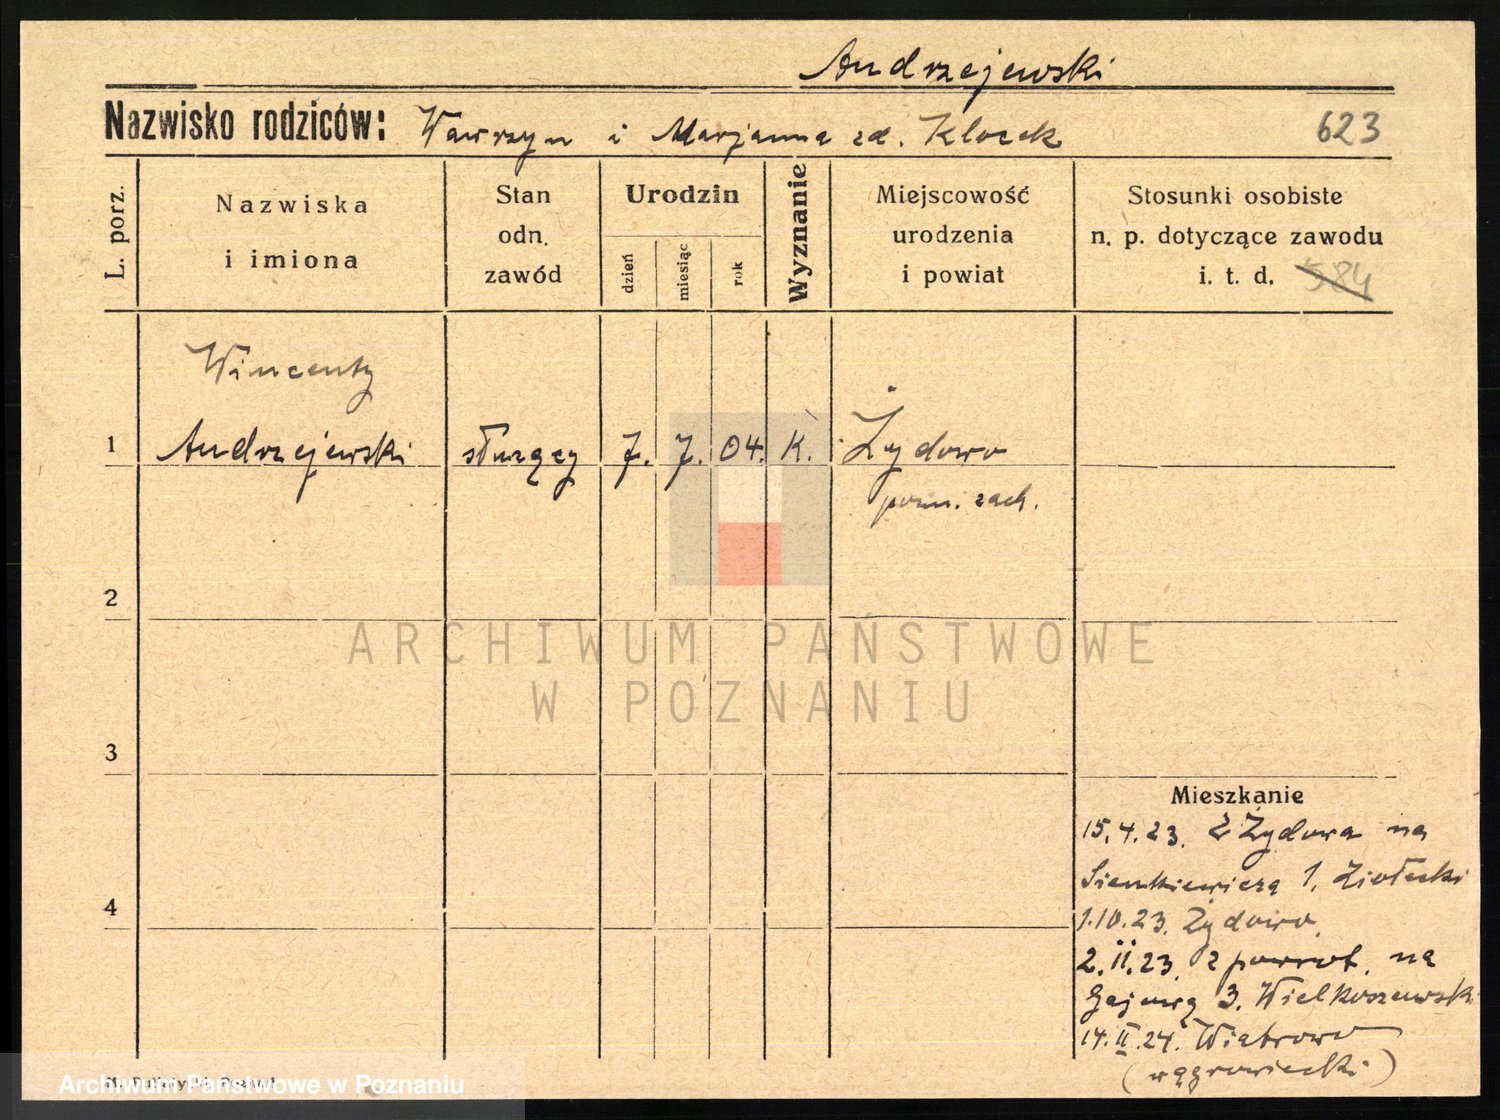 Andrzejewski
Nazwisko rodziców: Wawrzyn i Marjanna zd. Klozek
623
L. porz.
Nazwiska
i imiona
Stan
odn.
zawód
Urodzin
dzień
miesiąc
rok
Wyznanie
Miejscowość
urodzenia
i powiat
Stosunki osobiste
n. p. dotyczące zawodu
i. t. d.
584
Wincenty
1 Andrzejewski służący 7. 7. 04. K. Żydowo
pozn. zach.
2
ARCHIWUM PAŃSTWOWE
W POZNANIU
3
Mieszkanie
15.4.23. Z Żydowa na
Sienkiewicza 1. Ziółecki
4
1.10.23. Żydowo.
2.II.23. z powrot. na
Gajową 3. Wielkoszewski
14.II.24. Wiatrowo
(wągrowiecki)
Archiwum Państwowe w Poznaniu